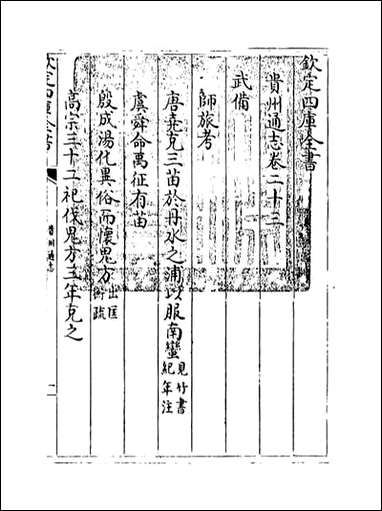 欽定四庫全書
貴州通志卷二十三
武備
師旅考
唐堯克三苗於丹水之浦以服南蠻見竹書紀年注
虞舜命禹征有苗
殷成湯化異俗而懷鬼方出匡衡疏
高宗三十二祀伐鬼方三年克之
欽定四庫全書
貴州通志